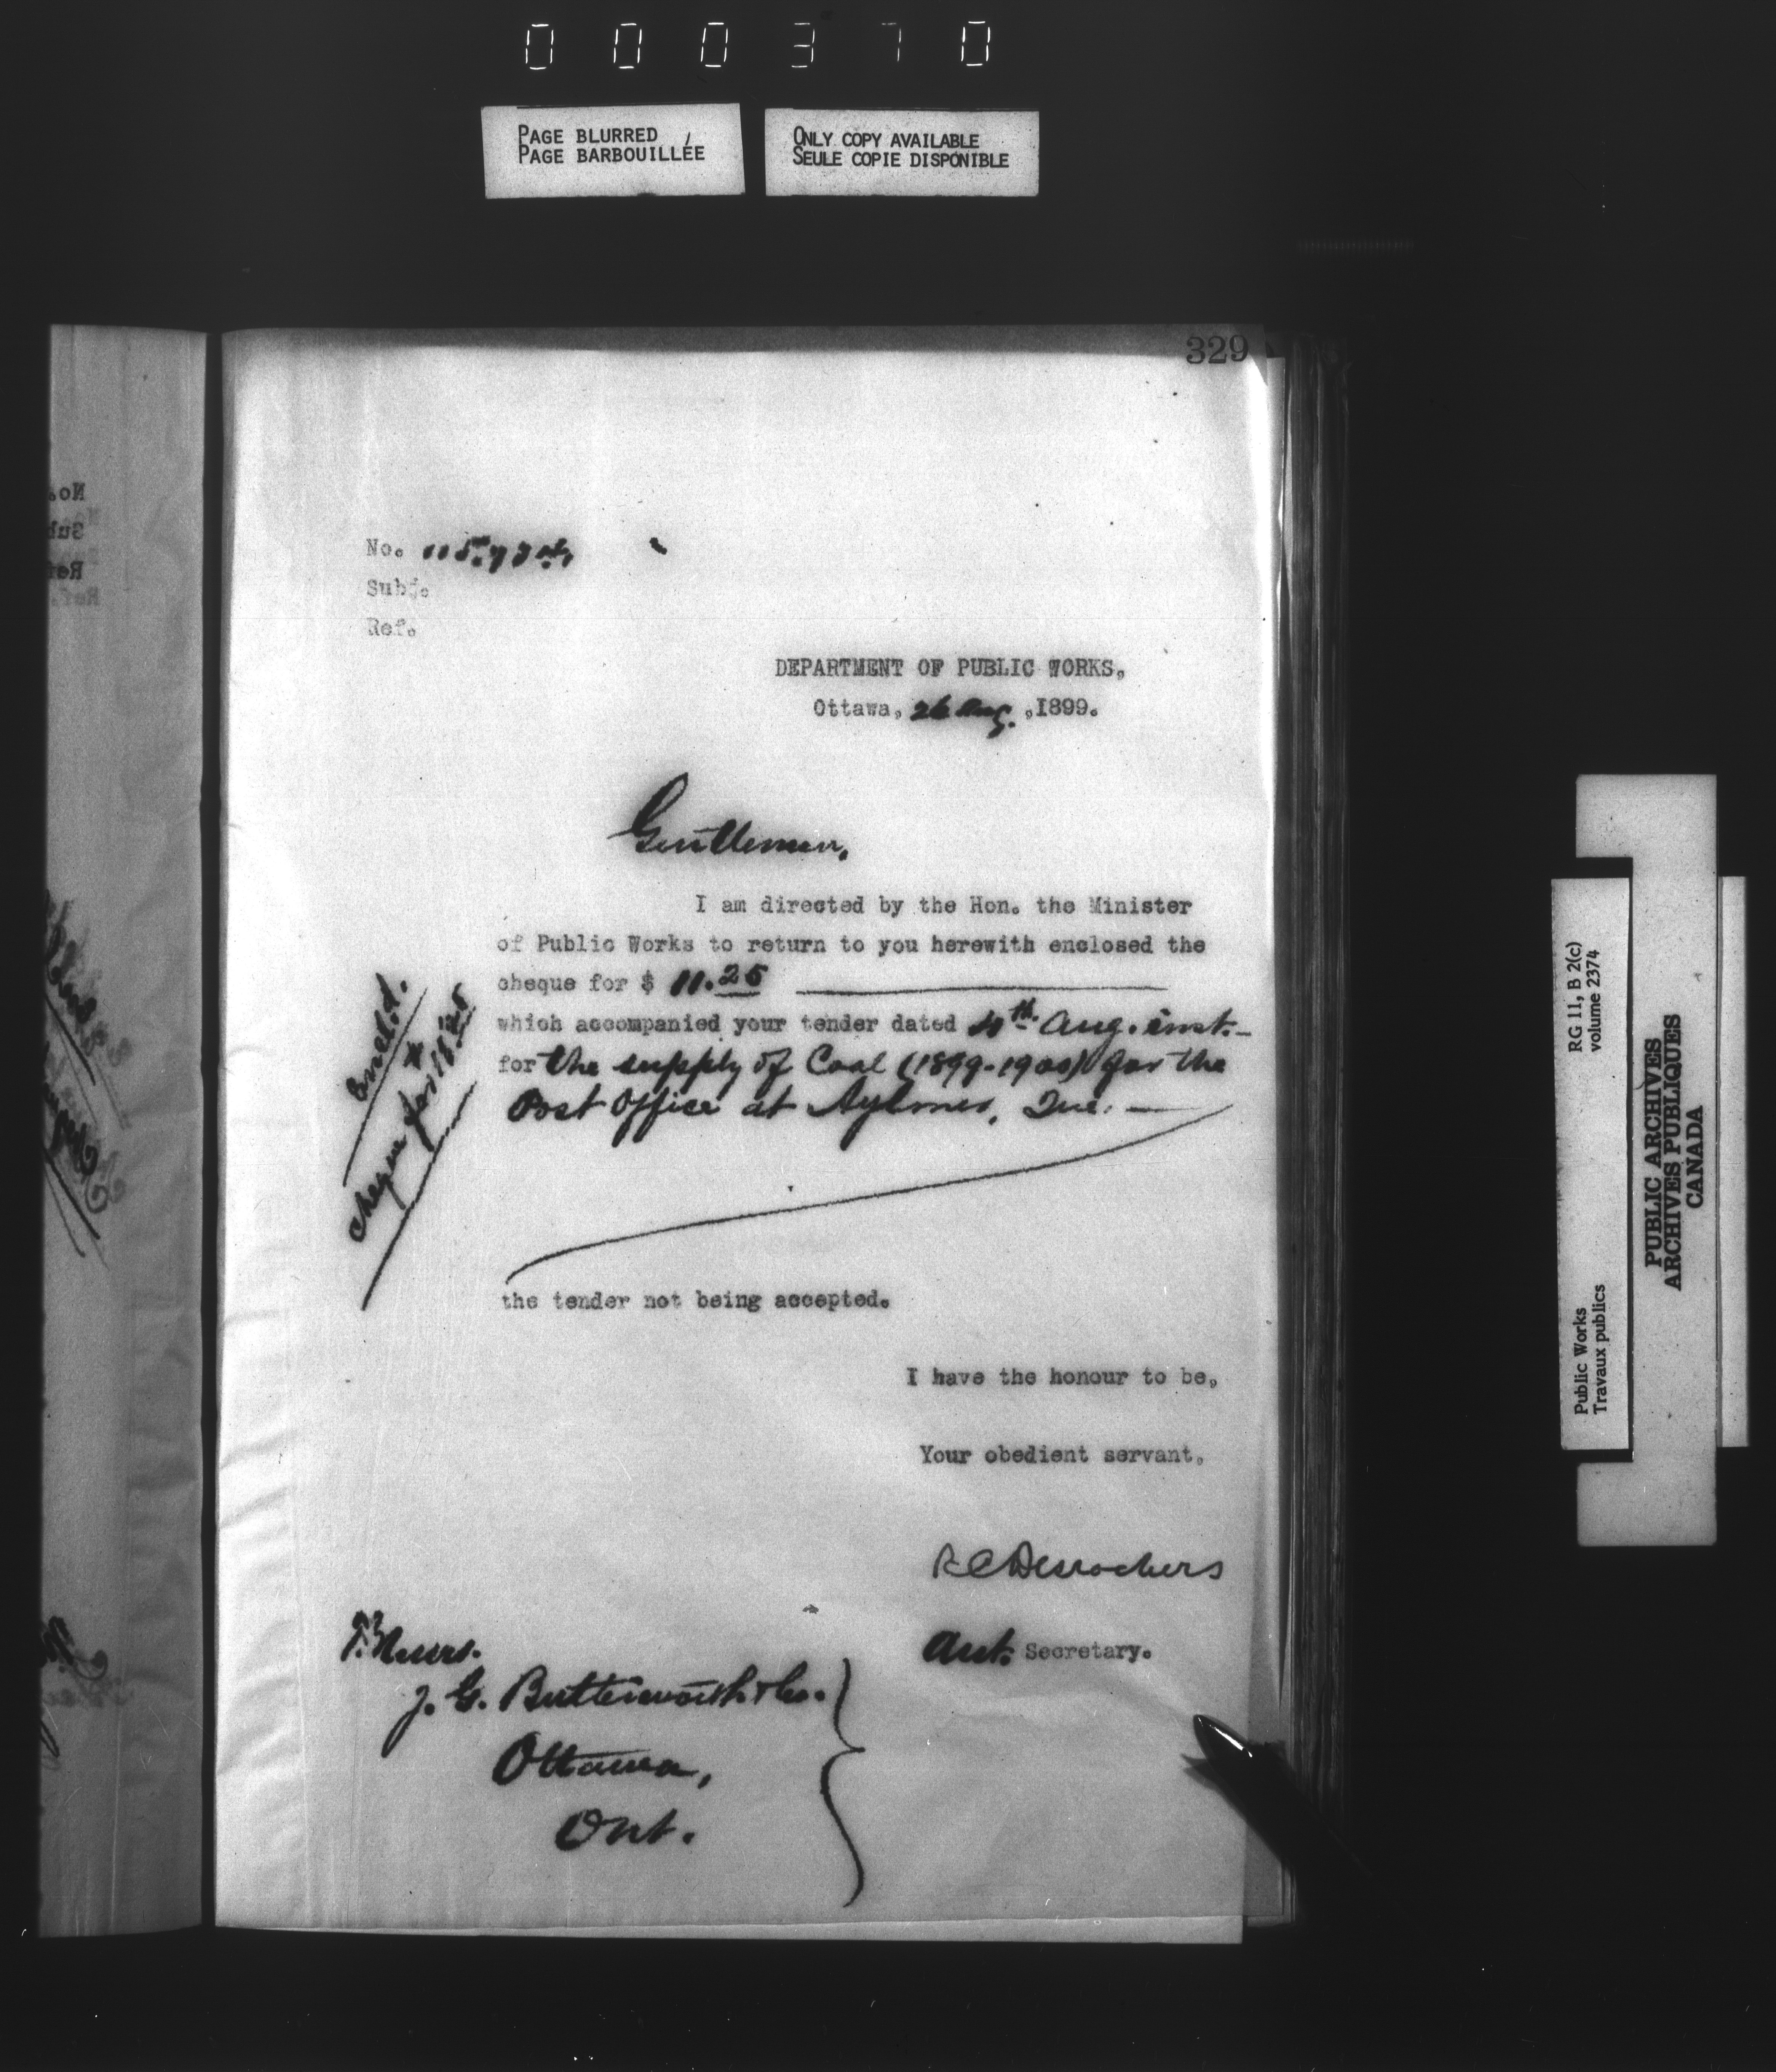 000370
PAGE BLURRED
PAGE BARBOUILLÉE
ONLY COPY AVAILABLE
SEULE COPIE DISPONIBLE
329
No.
Subj.
Ref.
DEPARTMENT OF PUBLIC WORKS,
Ottawa, 26 Aug. ,1899.
Gentlemen,
I am directed by the Hon. the Minister
of Public Works to return to you herewith enclosed the
cheque for $ 11.25
which accompanied your tender dated 4th Aug. inst.
for the supply of Coal (1899-1900) for the
Post Office at Aylmer, Que.
the tender not being accepted.
Encl.
cheque for 11.25
I have the honour to be,
Your obedient servant,
R C Desrochers
Asst. Secretary.
Messrs.
J. G. Butterworth & Co.
Ottawa,
Ont.
RG 11, B 2(c)
volume 2374
Public Works
Travaux publics
PUBLIC ARCHIVES
ARCHIVES PUBLIQUES
CANADA